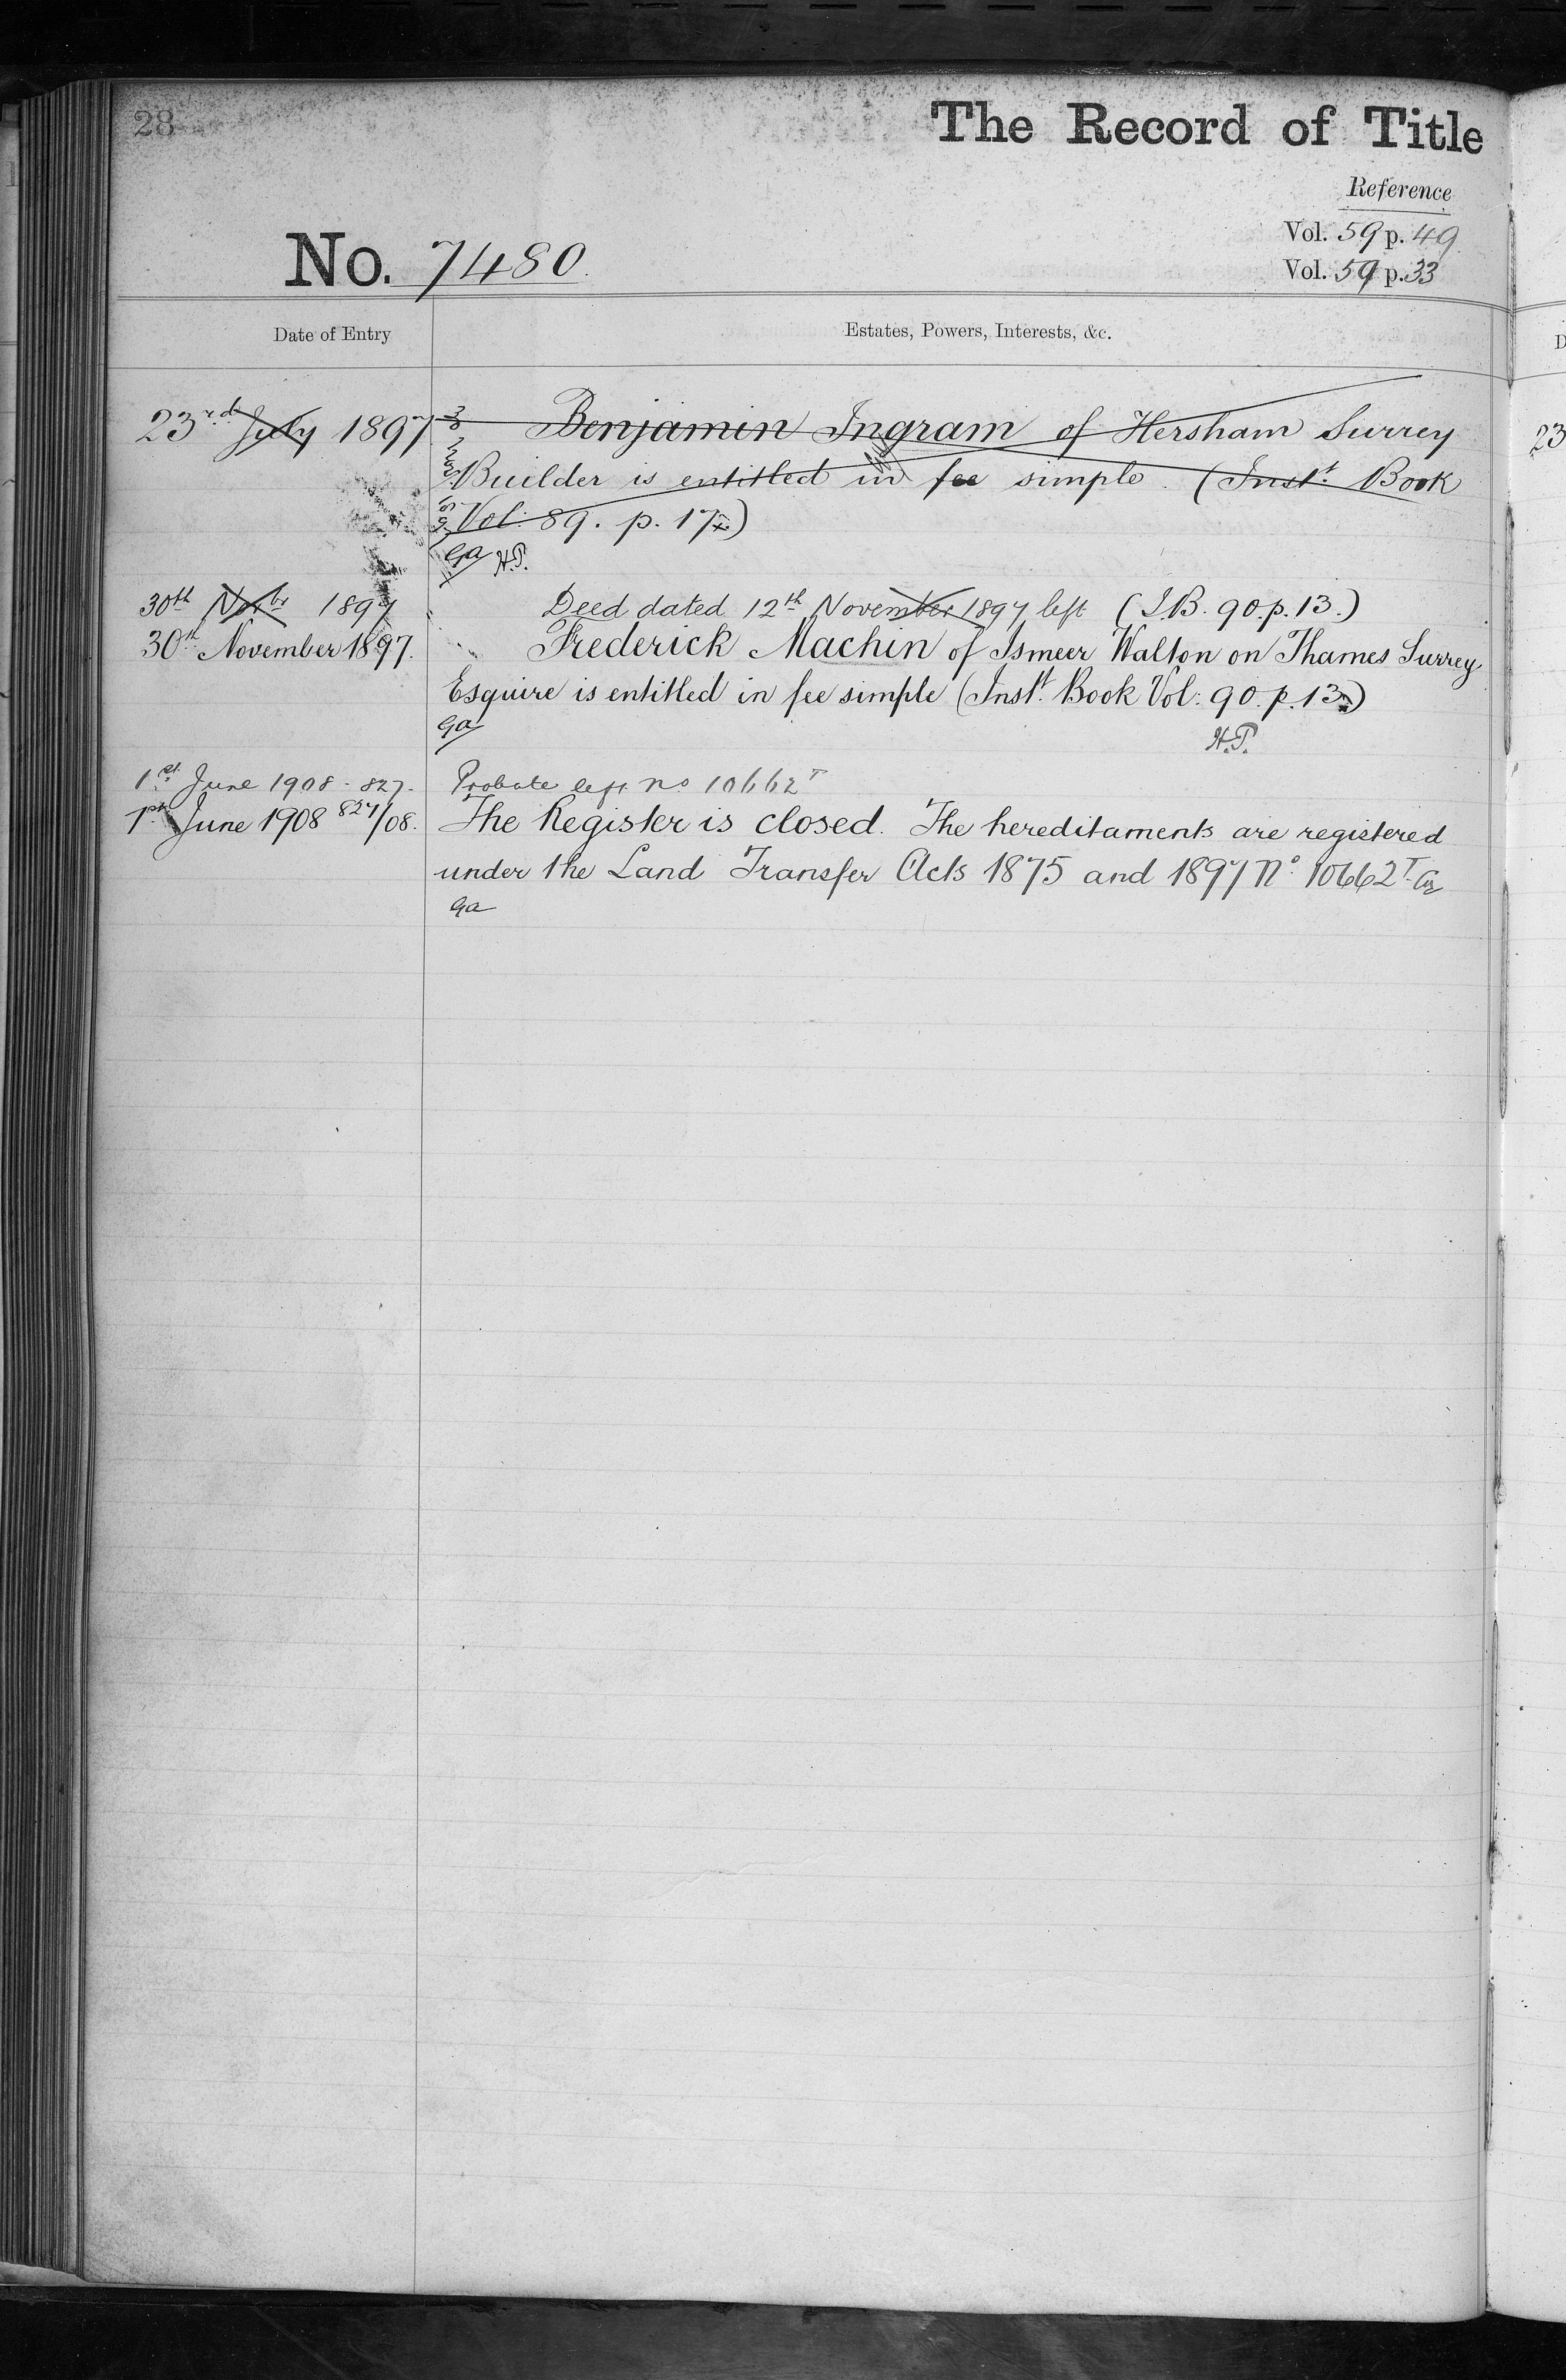 28
The Record of Title
Reference
Vol. 59 p. 49
Vol. 59 p. 33
No. 7480.
Date of Entry
Estates, Powers, Interests, &c.
23rd July 1897
Benjamin Ingram of Hersham Surrey
Builder is entitled in fee simple. (Inst. Book
Vol: 89. p. 17)
Ga H.P.
30th Novbr 1897 Deed dated 12th November 1897 left (I.B. 90. p. 13.)
30th November 1897. Frederick Machin of Ismeer Walton on Thames Surrey
Esquire is entitled in fee simple (Inst. Book Vol: 90. p. 13)
Ga H.P.
1st June 1908 - 827. Probate left No 10662T
1st June 1908 827/08. The Register is closed. The hereditaments are registered
under the Land Transfer Acts 1875 and 1897 No. 10662T
Ga
D
23